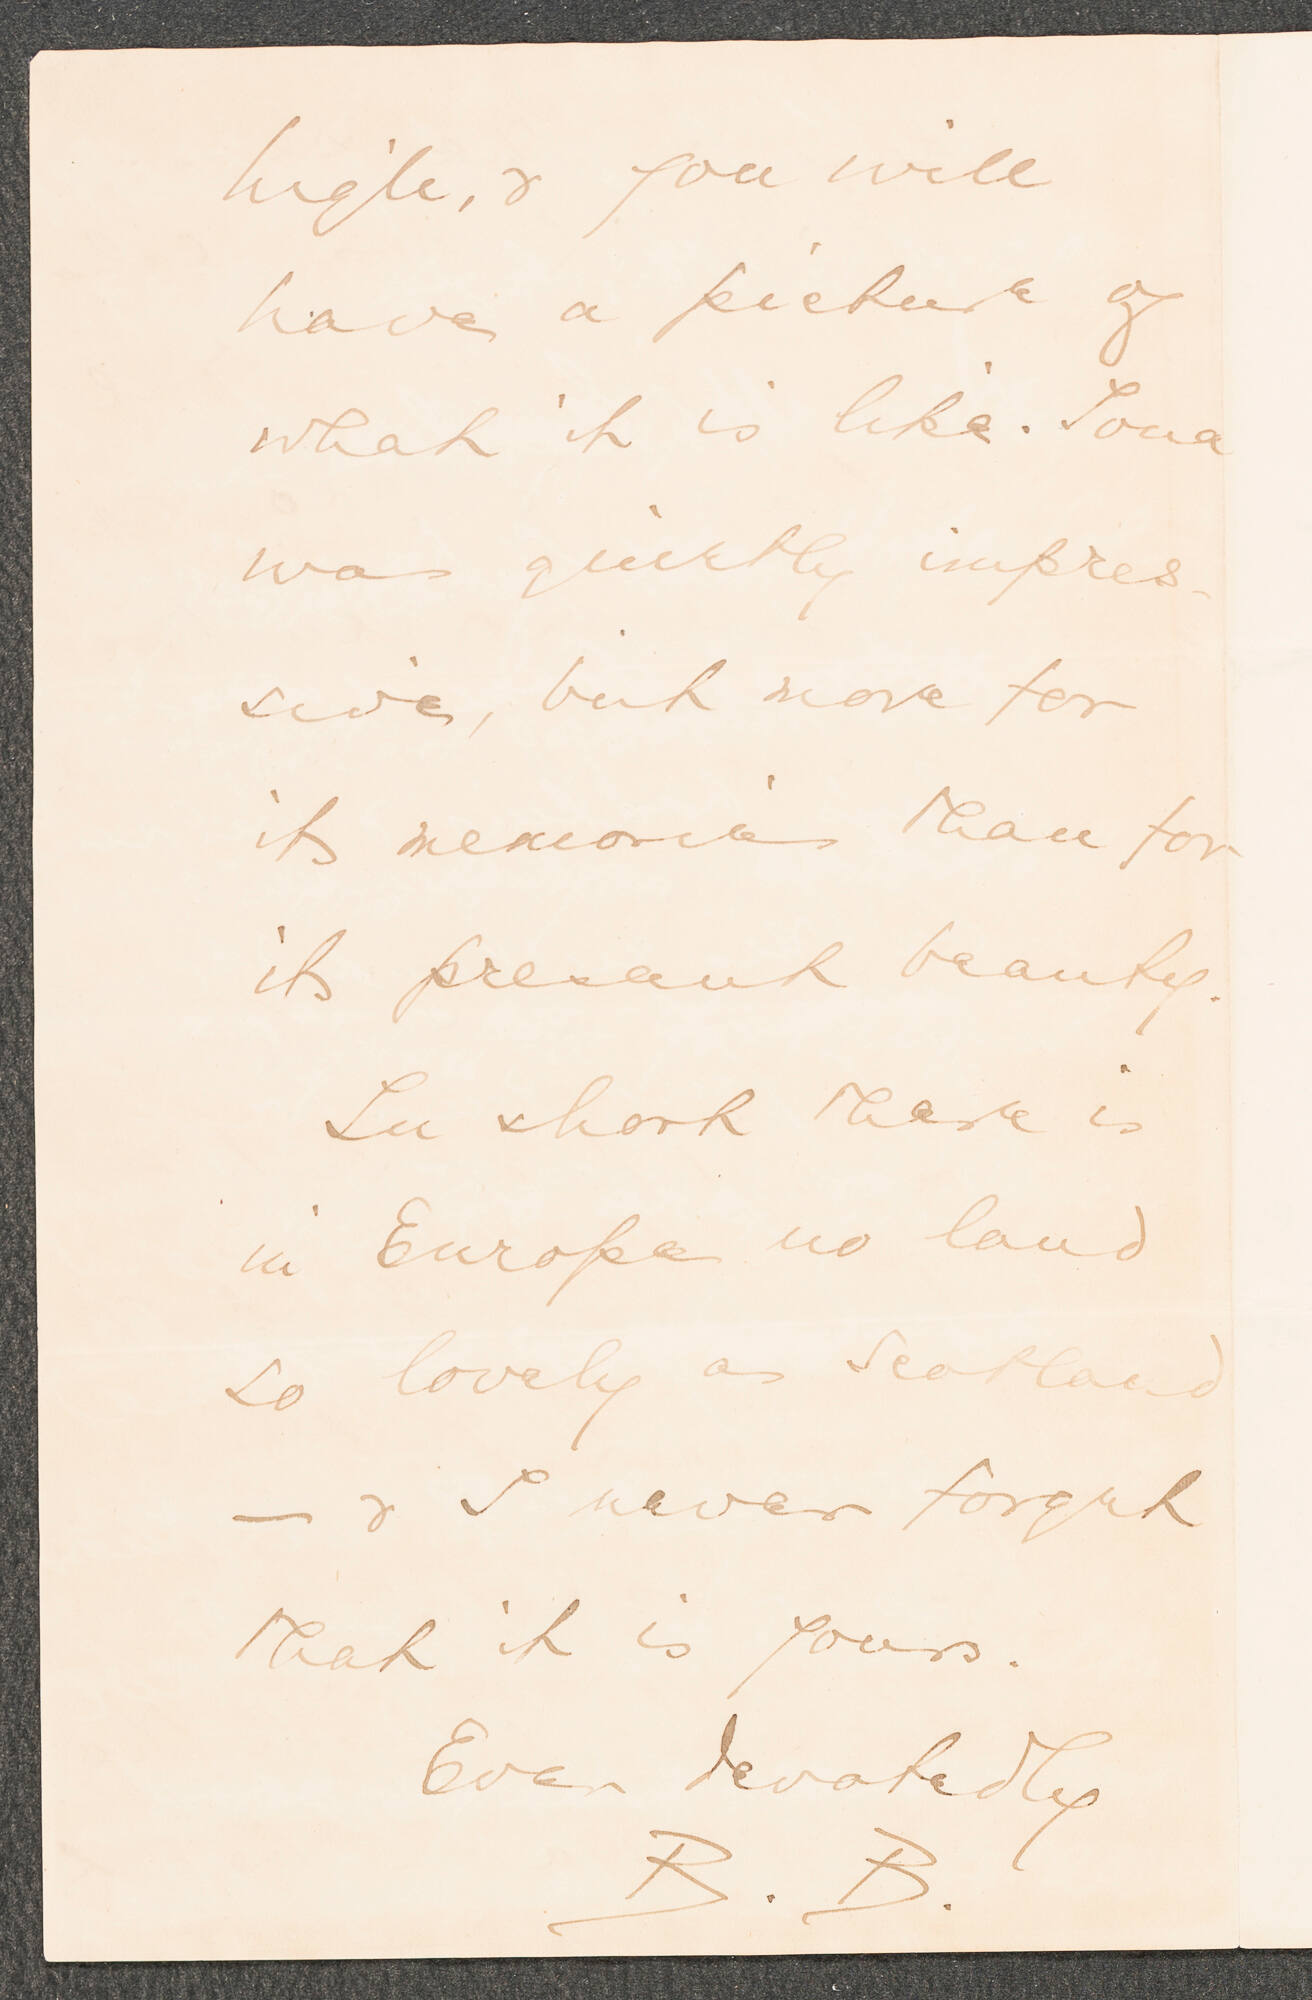 high, & you will
have a picture of
what it is like. Iona
was quietly impres-
sive, but more for
its memories than for
its present beauty.
In short there is
in Europe no land
so lovely as Scotland
— & I never forget
that it is yours.
Ever devotedly
B. B.